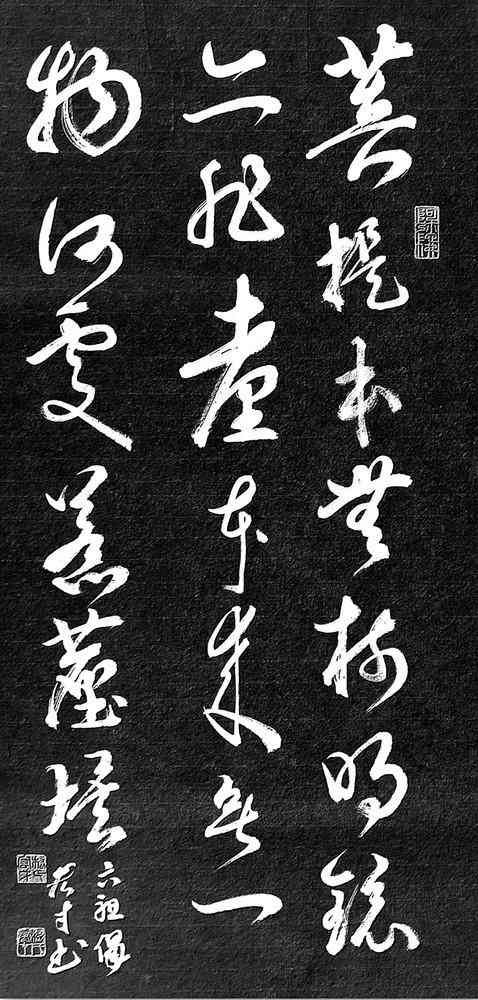 菩提本無樹明鏡
亦非臺本來無一
物何處惹塵埃
六祖偈